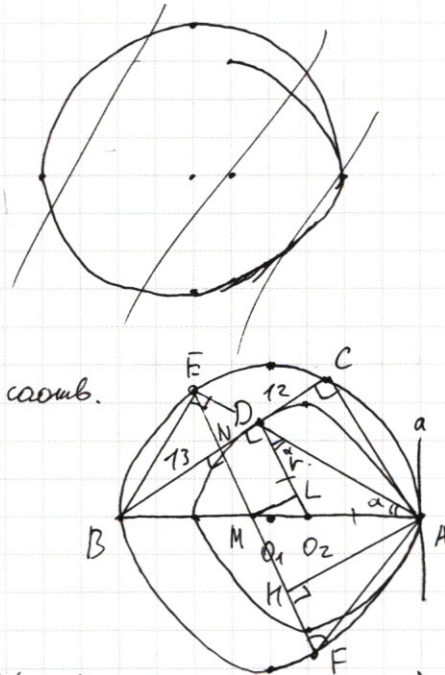 соотв.
E
C
12
D
a
N
13
α
r
L
α
B
M
O₁
O₂
A
H
F